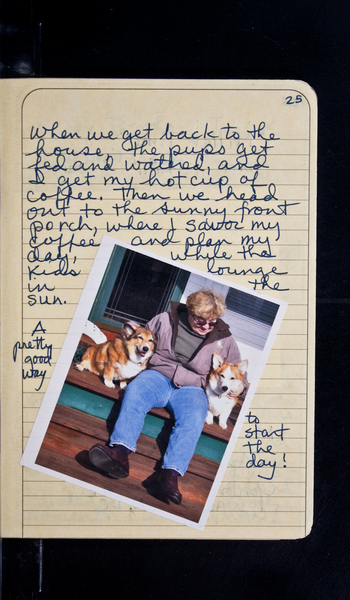 25
When we get back to the
house, the pups get
fed and watered, and
I get my hot cup of
coffee. Then we head
out to the sunny front
porch, where I savor my
coffee and plan my
day, while the
kids lounge
in the
sun.
A
pretty
good
way
to
start
the
day!